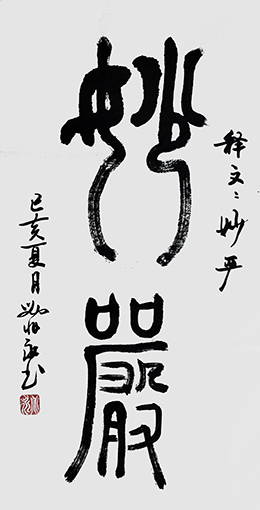 释文：妙严
妙嚴
己亥夏月